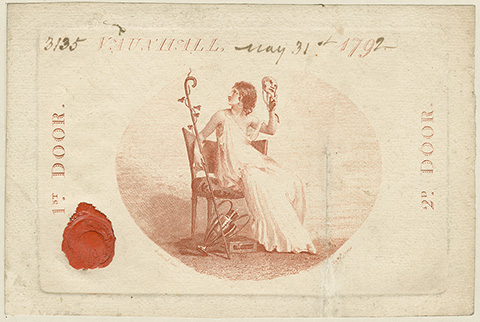 3135 VAUXHALL. May 31st 1792
1ST DOOR.
2D DOOR.